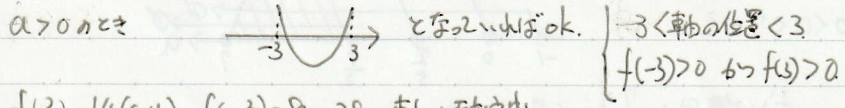 a>0のとき
-3 3
となっていればok.
-3<軸の位置<3
f(-3)>0 かつ f(3)>0.